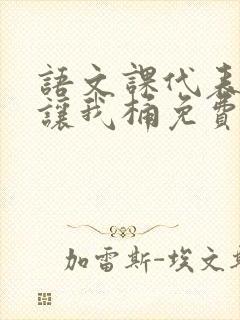 語文課代表
讓我桶免費
加雷斯-埃文斯